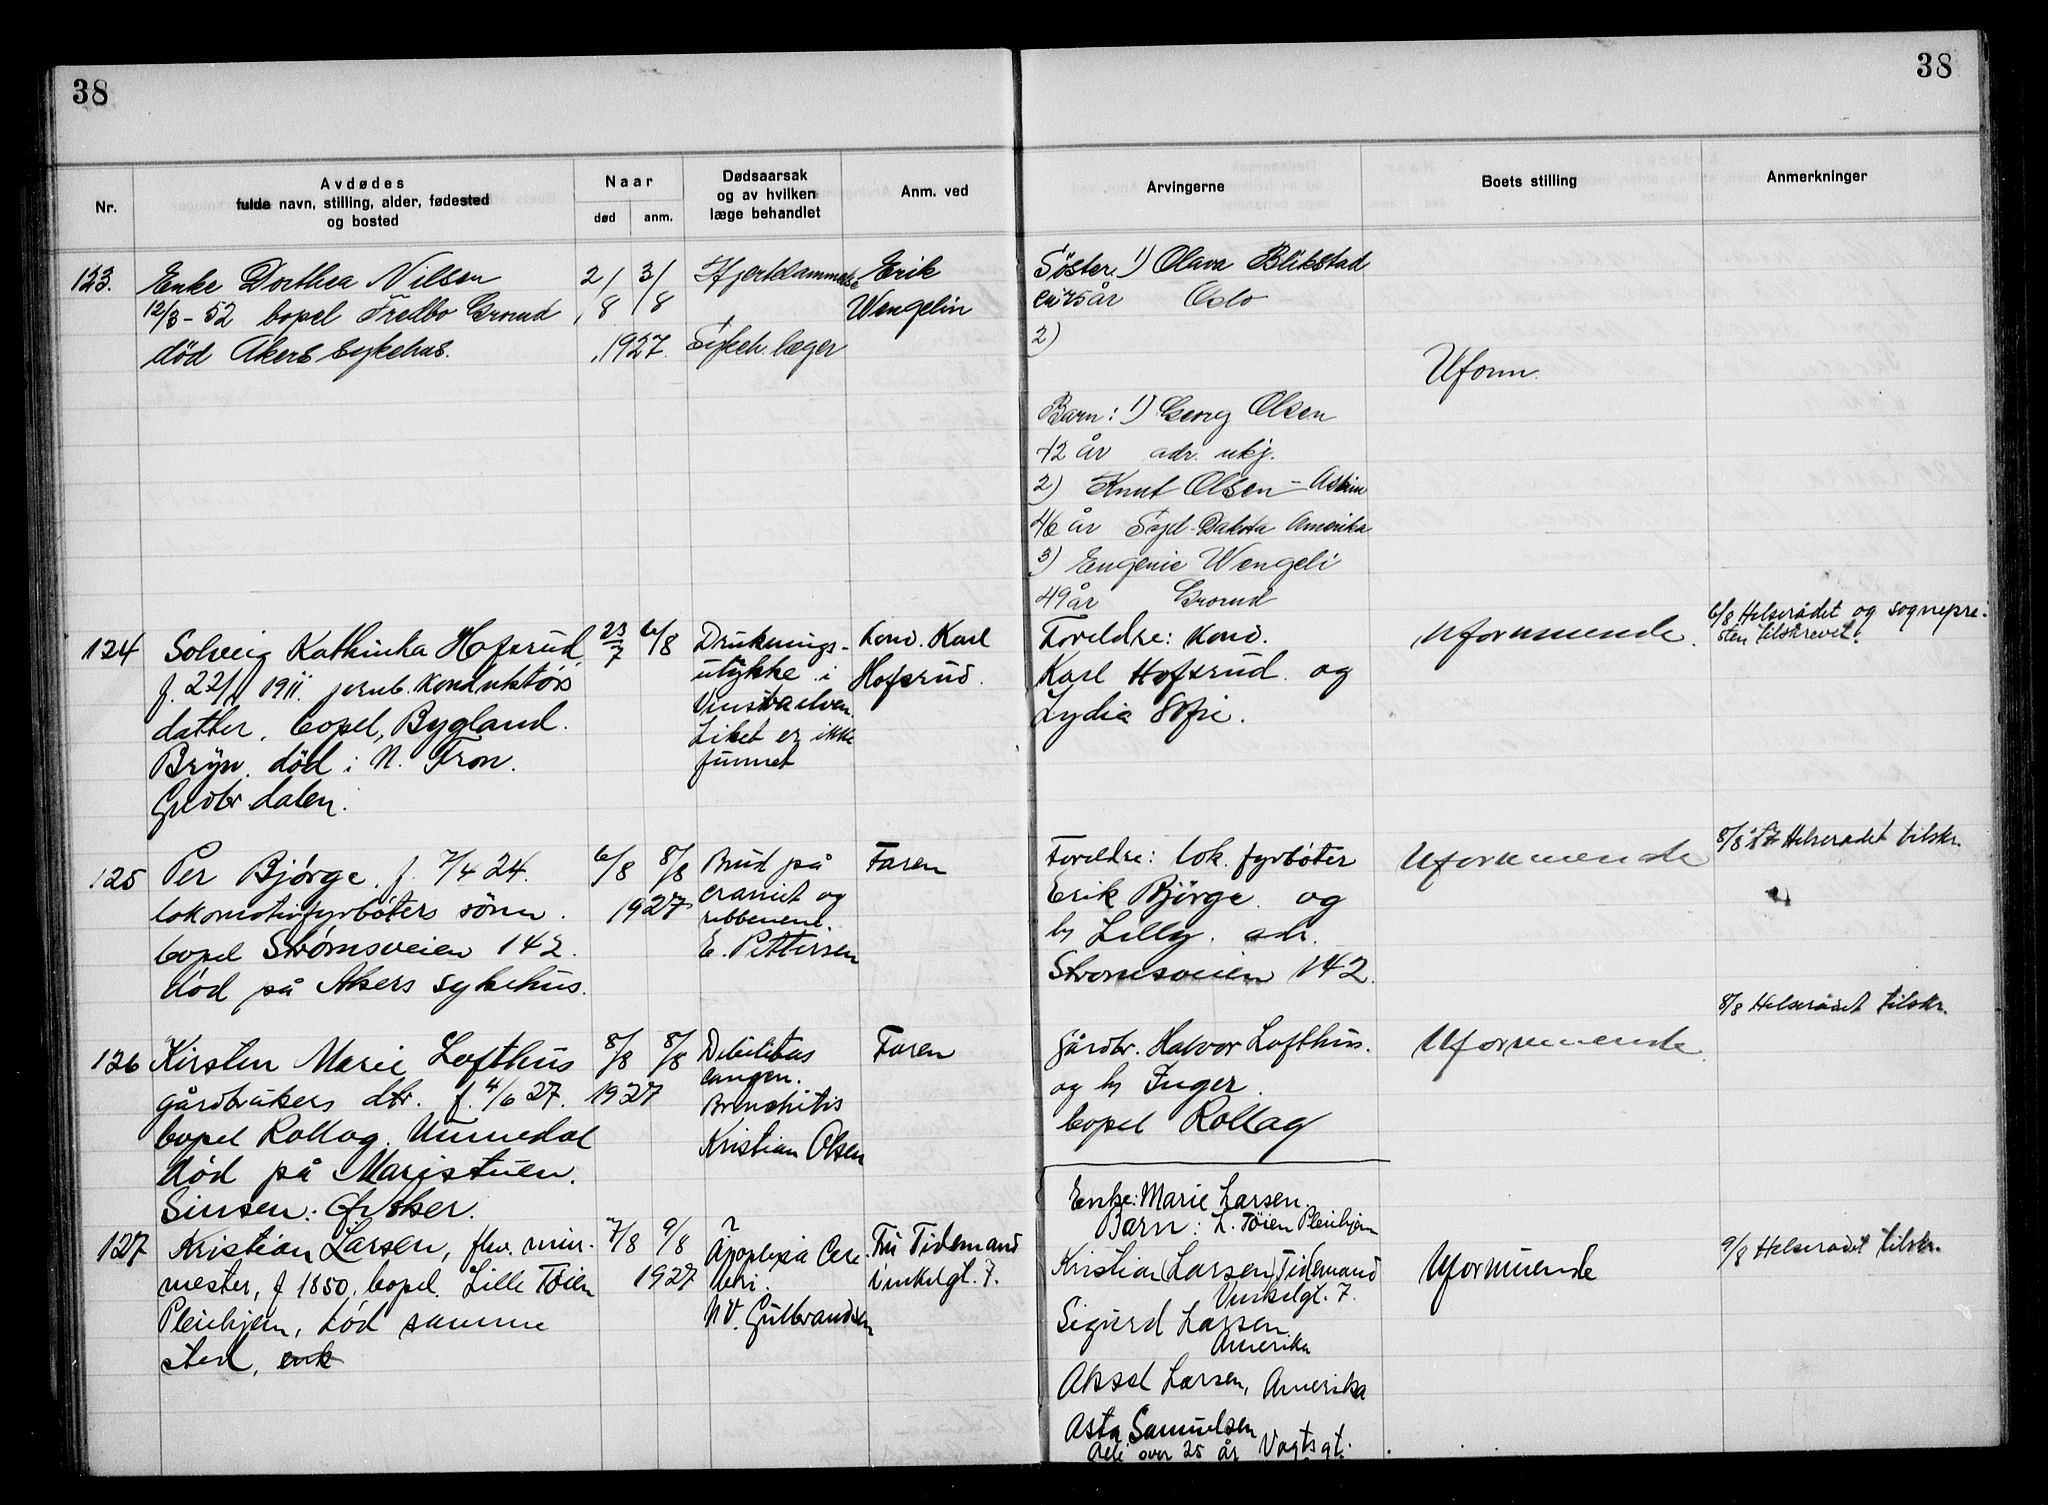 38
38
Nr.
Avdødes
fulde navn, stilling, alder, fødested
og bosted
Naar
død
anm.
Dødsaarsak
og av hvilken
læge behandlet
Anm. ved
Arvingerne
Boets stilling
Anmerkninger
123.
Enke Dorthea Nilsen
12/3 - 52 bopel Fredbo Grorud
död Akers sykehus.
2/8
3/8
1927.
Sykeh. læger
Erik
Wengelin
Söster 1) Olava Blikstad
75 år Oslo
2)
Barn: 1) Georg Olsen
42 år adr. ukj.
2) Knut Olsen - Askim
46 år Syd-Dakota Amerika
3) Eugenie Wengeli
49 år Grorud
Uform.
124
Solveig Kathinka Hofsrud,
f. 22/ 1911. jernb. konduktörs
datter, bopel, Bygland.
Bryn. död i N. Fron.
Gudbr.dalen.
23/7
6/8
Druknings-
ulykke i
Vinstraelven.
Liket er ikke
funnet
Kond. Karl
Hofsrud.
Foreldre: Kond.
Karl Hofsrud og
Lydia Sofie.
Uformuende.
6/8 Helserådet og sognepre-
sten tilskrevet.
125
Per Bjørge, f. 7/4 24.
lokomotivfyrböters sönn.
bopel Strømsveien 142.
död på Akers sykehus.
6/8
8/8
1927
Brud på
craniet og
ribbenene.
E. Pettersen
Faren
Foreldre: lok. fyrböter
Erik Björge og
h Lilly. adr.
Strømsveien 142.
Uformuende
8/8 27 Helserådet tilskr.
126
Kirsten Marie Lofthus
gårdbrukers dtr. f. 4/6 27.
bopel Rollag. Numedal
död på Maristuen.
Sinsen: Ö. Aker.
8/8
8/8
1927
Debilitas
congen.
Bronchitis
Kristian Olsen
Faren
gårdbr. Halvor Lofthus.
og h Inger.
bopel Rollag
Uformuende
8/8 Helserådet tilskr.
127
Kristian Larsen, fhv. mur-
mester, f 1850, bopel. Lille Töien
Pleiehjem, död samme
sted, enk
7/8
9/8
1927
Apoplexia Cere
bri.
N V. Gulbrandsen
Fru Tidemand
Urskilgt. 7.
Enke: Marie Larsen.
Barn: L. Töien Pleiehjem
Kristian (Larsen) Tidemand
Urskilgt. 7.
Sigurd Larsen.
Amerika
Aksel Larsen, Amerika
Asta Samuelsen
Alle over 25 år Vogtsgt.
Uformuende
9/8 Helserådet tilskr.